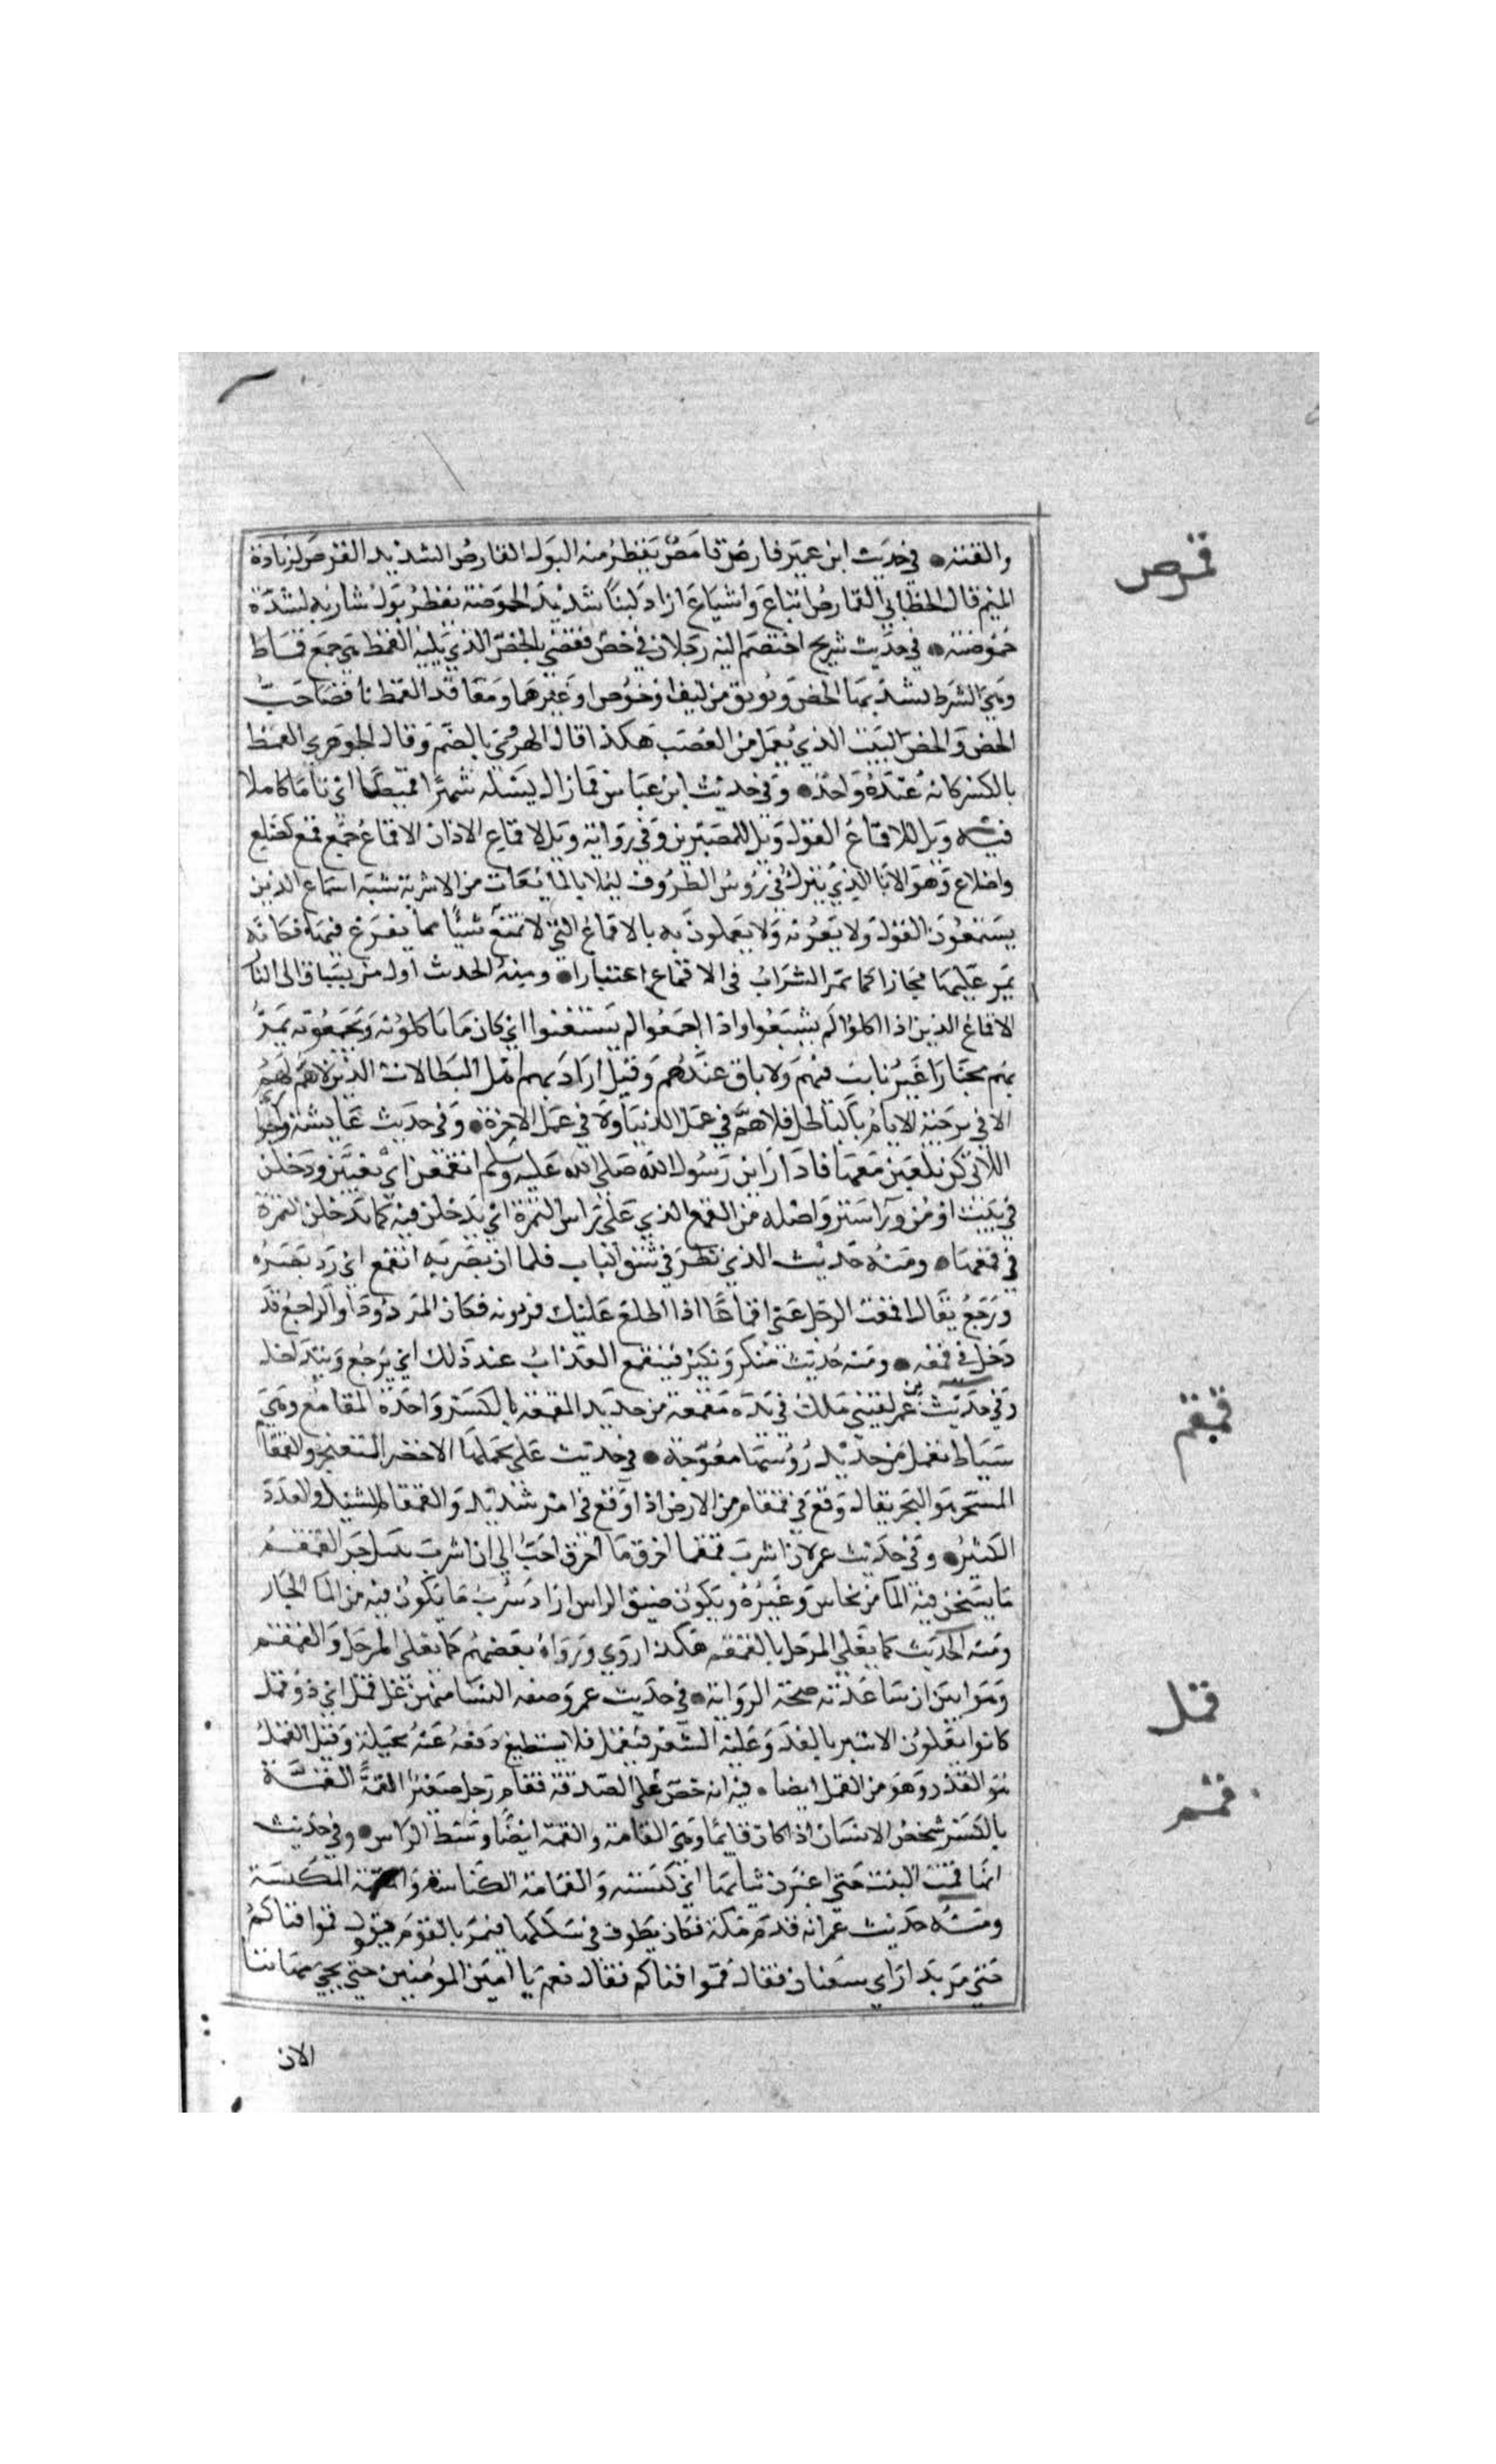 والفتنه ● في حديث ابن عمير قارص قمارص يقطر منه البول القمارص الشديد القرص لزيادة
قمرص
الميم قال الخطابي القمارص اتباع واشباع اراد لبنا شديد الحموضة يقطر بول شاربه لشدة
حموضته ● في حديث شريح اختصم اليه رجلان في خص فقضى بالخص للذي يليه القمط هي جمع قماط
وهي الشرط يشد بها الخص ويوثق من ليف او خوص او غيرهما ومعاقد القمط تلي صاحب
الخص والخص البيت الذي يعمل من القصب هكذا قال الهروي بالضم وقال الجوهري القمط
بالكسر كانه عنده واحد ● وفي حديث ابن عباس فما زال يسله شهرا قميطا اي تاما كاملا
فيه ويل لاقماع القول ويل للمصرين وفي رواية ويل لاقماع الاذان الاقماع جمع قمع كضلع
واضلاع وهو الانا الذي يترك في رؤس الظروف ليملا بالمايعات من الاشربة شبه اسماع الذين
يستمعون القول ولا يعونه ولا يعملون به بالاقماع التي لا تمتع شيأ مما يفرغ فيها فكانه
يمر عليها مجازا كما تمر الشراب في الاقماع اعتبارا ● ومنه الحدث اول من يساق الى النار
الاقماع الذين اذا اكلوا لم يشبعوا واذا اجمعوا لم يستغنوا اي كان ما ياكلونه ويجمعونه يمر
بهم مجتازا غير ثابت فيهم ولا باق عندهم وقيل اراد بهم اهل البطالات الذين لا هم لهم
الا في ترجية الايام بالباطل فلا هم في عمل الدنيا ولا في عمل الاخرة ● وفي حديث عايشة والجواري
اللاتي كن يلعبن معها فاذا راين رسول الله صلى الله عليه وسلم انقمعن اي تغيبن ودخلن
في بيت او من ورا ستر واصله من القمع الذي على راس التمرة اي يدخلن فيه كما تدخل التمرة
في قمعها ● ومنه حديث الذي نظر في شق الباب فلما ان بصر به انقمع اي رد بصره
ورجع يقال اقمعت الرجل عني اقماعا اذا اطلع عليك فرددته فكان المردود او الراجع قد
دخل في قمعه ● ومنه حديث منكر ونكير فينقمع العذاب عند ذلك اي يرجع ويتداخل
وفي حديث بن عمر لقيني ملك في يده مقمعة من حديد المقمعة بالكسر واحدة المقامع وهي
قمقم
سياط تعمل من حديد رؤسها معوجة ● في حديث علي يحملها الاخضر المثعنجر والقمقام
المسخر هو البحر يقال وقع في قمقام من الارض اذا وقع في امر شديد والقمقام السيد والعدد
الكثير ● وفي حديث عمر لان اشرب قمقما احرق ما احرق احب الي ان اشرب نبيذ جر القمقم
ما يسخن فيه الما من نحاس وغيره ويكون ضيق الراس اراد شرب ما يكون فيه من الما الحار
ومنه الحديث كما يغلي المرجل بالقمقم هكذا روي ورواه بعضهم كما يغلي المرجل والقمقم
وهو ابين ان ساعدته صحة الرواية ● في حديث عمر وصفه النسا منهن غل قمل اي ذو قمل
قمل
كانوا يغلون الاسير بالقد وعليه الشعر فيقمل فلا يستطيع دفعه عنه بحيلة وقيل القمل
هو القذر وهو من القمل ايضا ● فيه انه حض على الصدقة فقام رجل صغير القمة القمة
قمم
بالكسر شخص الانسان اذا كان قايما وهي القامة والقمة ايضا وسط الراس ● وفي حديث
انها قمت البيت حتى اغبرت ثيابها اي كنسته والقمامة الكناسة والمقمة المكنسة
ومنه حديث عمر انه قدم مكة فكان يطوف في سككها فيمر بالقوم فيقول قموا فناكم
حتى مر بدار ابي سفيان فقال قموا فناكم فقال نعم يا امير المؤمنين حتى يجيء مهاننا
الان